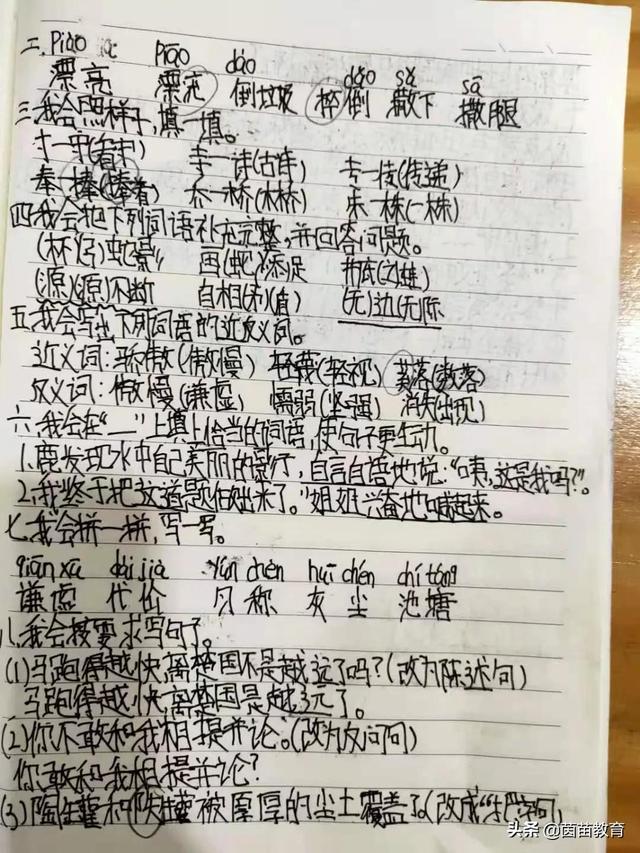 二、piào piāo dào dǎo sǎ sā
漂亮 漂流 倒垃圾 摔倒 撒下 撒腿
三、我会照样子,填一填。
寸—守(看守) 寺—诗(古诗) 专—传(传递)
奉—捧(捧着) 乔—桥(木桥) 朱—株(一株)
四、我会把下列词语补充完整,并回答问题。
(杯)(弓)蛇影 画(蛇)添足 井底(之)(蛙)
(源)(源)不断 自相(矛)(盾) (无)边(无)际
五、我会写出下列词语的近反义词。
近义词:骄傲(傲慢) 轻蔑(轻视) 奚落(数落)
反义词:傲慢(谦虚) 懦弱(坚强) 消失(出现)
六、我会在“__”上填上恰当的词语,使句子更生动。
1.鹿发现水中自己美丽的影子,自言自语地说:“咦,这是我吗?”。
2.“我终于把这道题做出来了。”姐姐兴奋地喊起来。
七、我会拼一拼,写一写。
qiān xū dài jià yún chèn huī chén chí táng
谦虚 代价 匀称 灰尘 池塘
八、我会按要求写句子。
(1)马跑得越快,离楚国不是越远了吗?(改为陈述句)
马跑得越快,离楚国是越远了。
(2)你不敢和我相提并论。(改为反问句)
你敢和我相提并论?
(3)陶罐和铁罐被厚厚的尘土覆盖了。(改成“把”字句)
头条 @茵苗教育